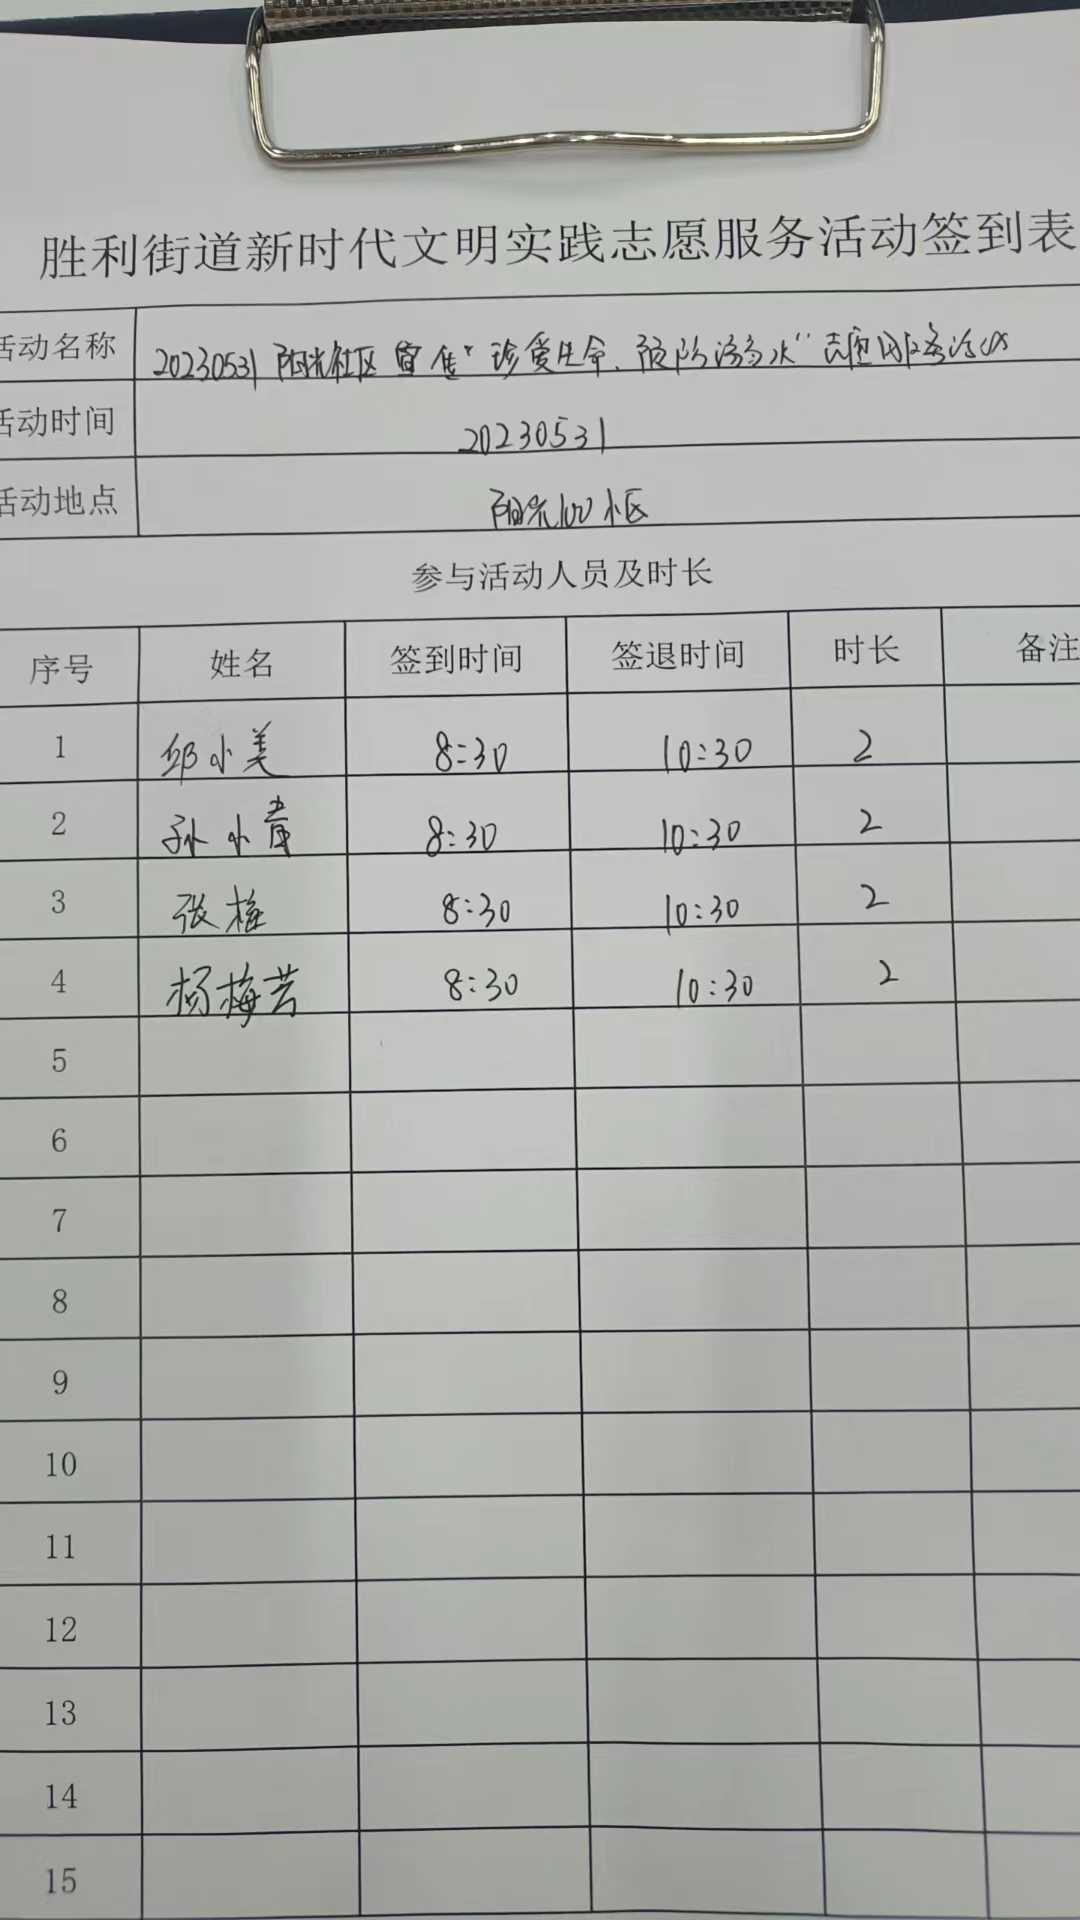 胜利街道新时代文明实践志愿服务活动签到表
活动名称 20230531 阳光社区宣传"珍爱生命、预防溺水"志愿服务活动
活动时间 20230531
活动地点 阳光100小区
参与活动人员及时长
序号 姓名 签到时间 签退时间 时长 备注
1 邱小美 8:30 10:30 2
2 孙小青 8:30 10:30 2
3 张梅 8:30 10:30 2
4 杨梅芸 8:30 10:30 2
5
6
7
8
9
10
11
12
13
14
15